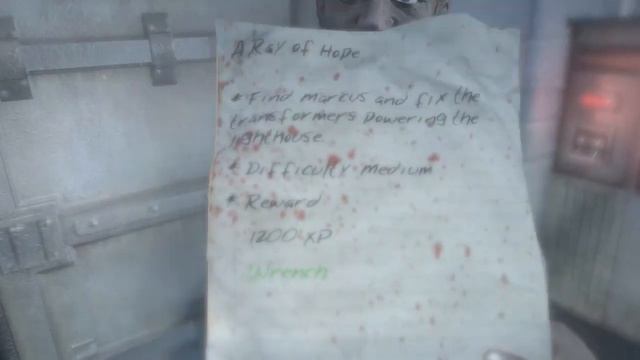 A Ray of Hope
* Find marcus and fix the
transformers powering the
lighthouse
* Difficulty medium
* Reward
1200 XP
Wrench